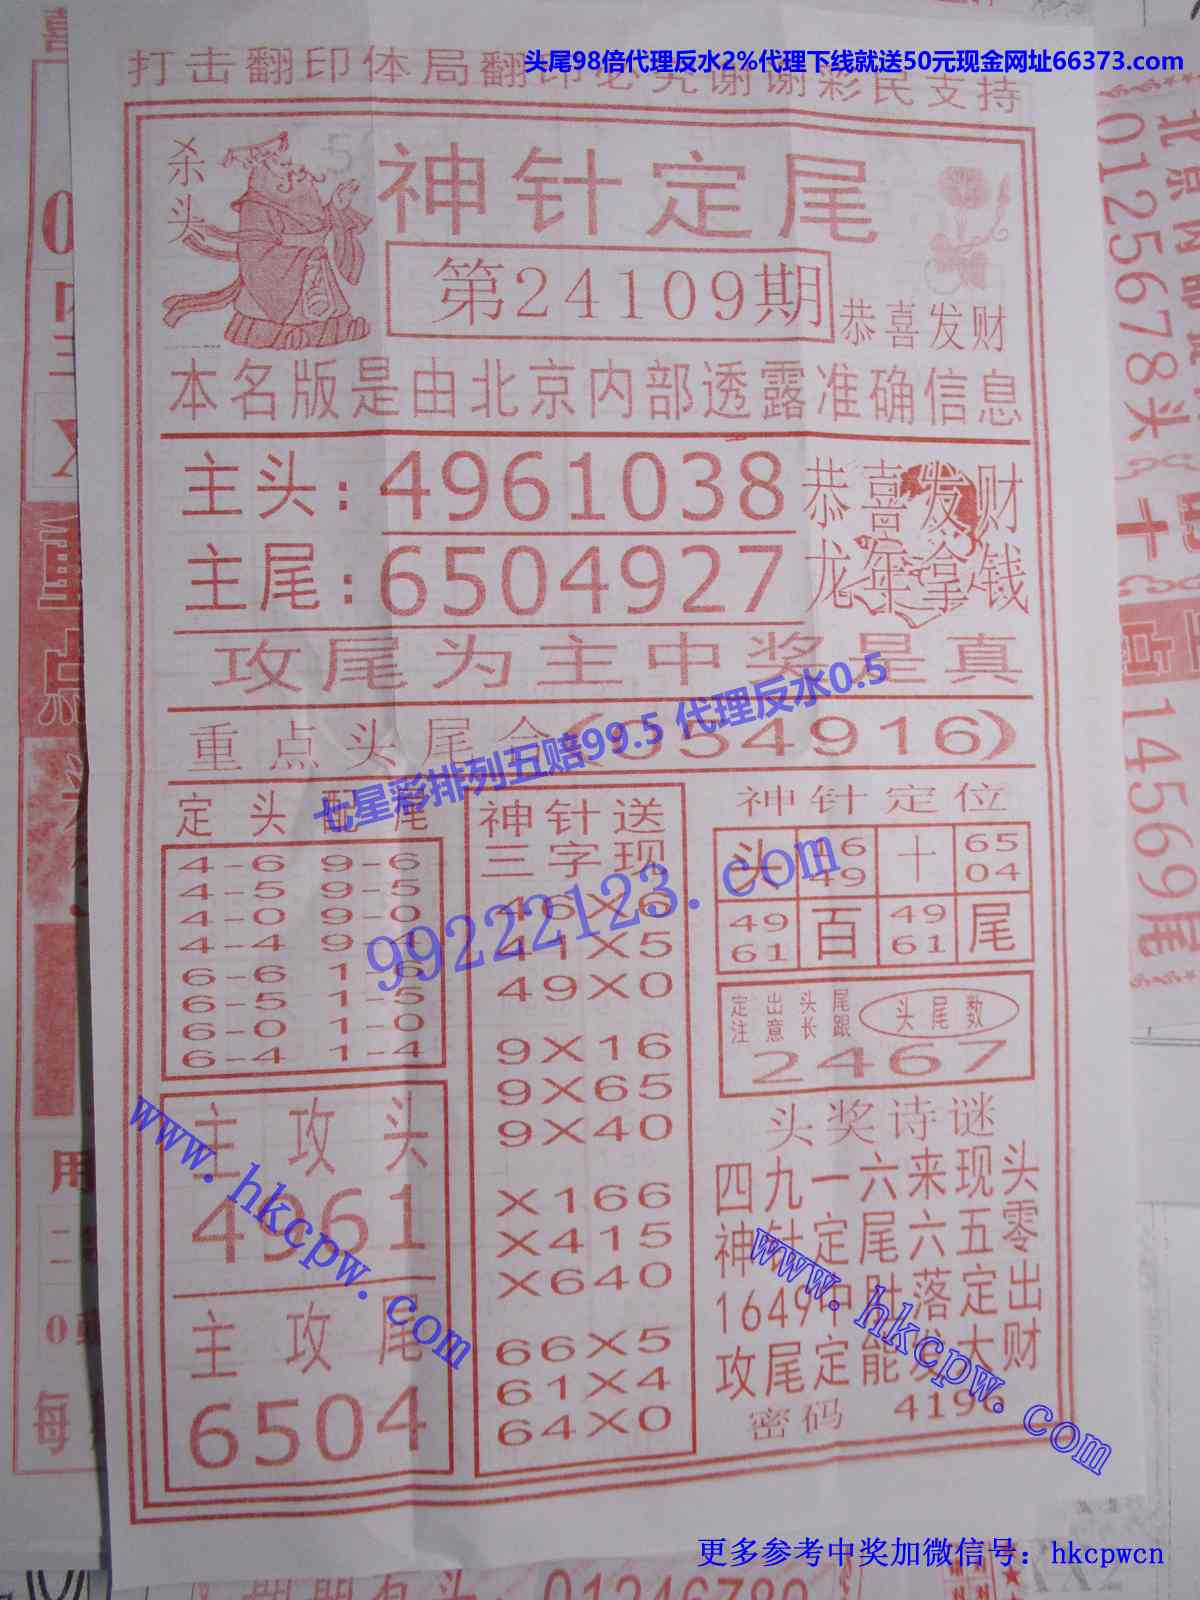 头尾98倍代理反水2%代理下线就送50元现金网址66373.com
打击翻印体局翻印必究谢谢彩民支持
杀头
神针定尾
第24109期
恭喜发财
本名版是由北京内部透露准确信息
主头:4961038
恭喜发财
主尾:6504927
龙年拿钱
攻尾为主中奖是真
重点头尾合(654916)
七星彩排列五赔99.5 代理反水0.5
99222123.com
定头配尾
4-6 9-6
4-5 9-5
4-0 9-0
4-4 9-4
6-6 1-6
6-5 1-5
6-0 1-0
6-4 1-4
主攻头
4961
主攻尾
6504
神针送
三字现
46X6
41X5
49X0
9X16
9X65
9X40
X166
X415
X640
66X5
61X4
64X0
神针定位
头 16 十 65
49 04
49 百 49 尾
61 61
定出头尾
注意长跟
头尾数
2467
头奖诗谜
四九一六来现头
神针定尾六五零
1649中肚落定出
攻尾定能发大财
密码 4196
www.hkcpw.com
www.hkcpw.com
更多参考中奖加微信号：hkcpwcn
北京内部
0125678头
14569尾
重点
用
每
01246789